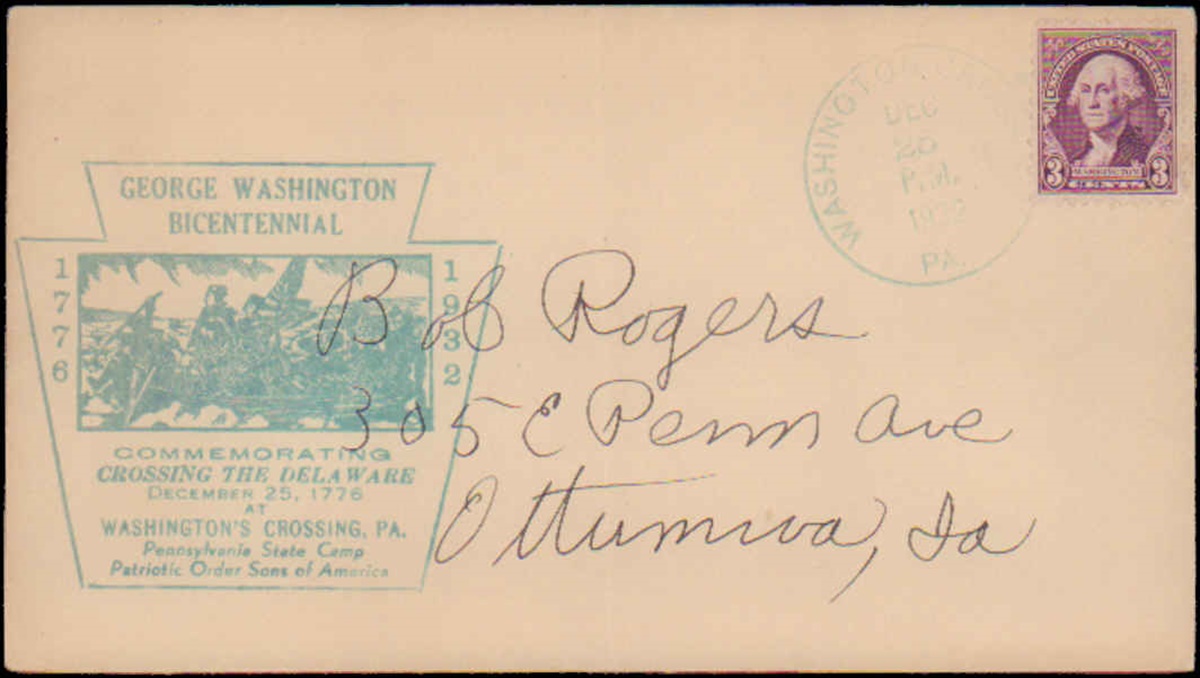 GEORGE WASHINGTON
BICENTENNIAL
1776
1932
COMMEMORATING
CROSSING THE DELAWARE
DECEMBER 25, 1776
AT
WASHINGTON'S CROSSING, PA.
Pennsylvania State Camp
Patriotic Order Sons of America
WASHINGTON
DEC
P.M.
1932
PA.
UNITED STATES POSTAGE
3 WASHINGTON 3
CENTS
Bob Rogers
305 E Penn Ave
Ottumwa, Ia